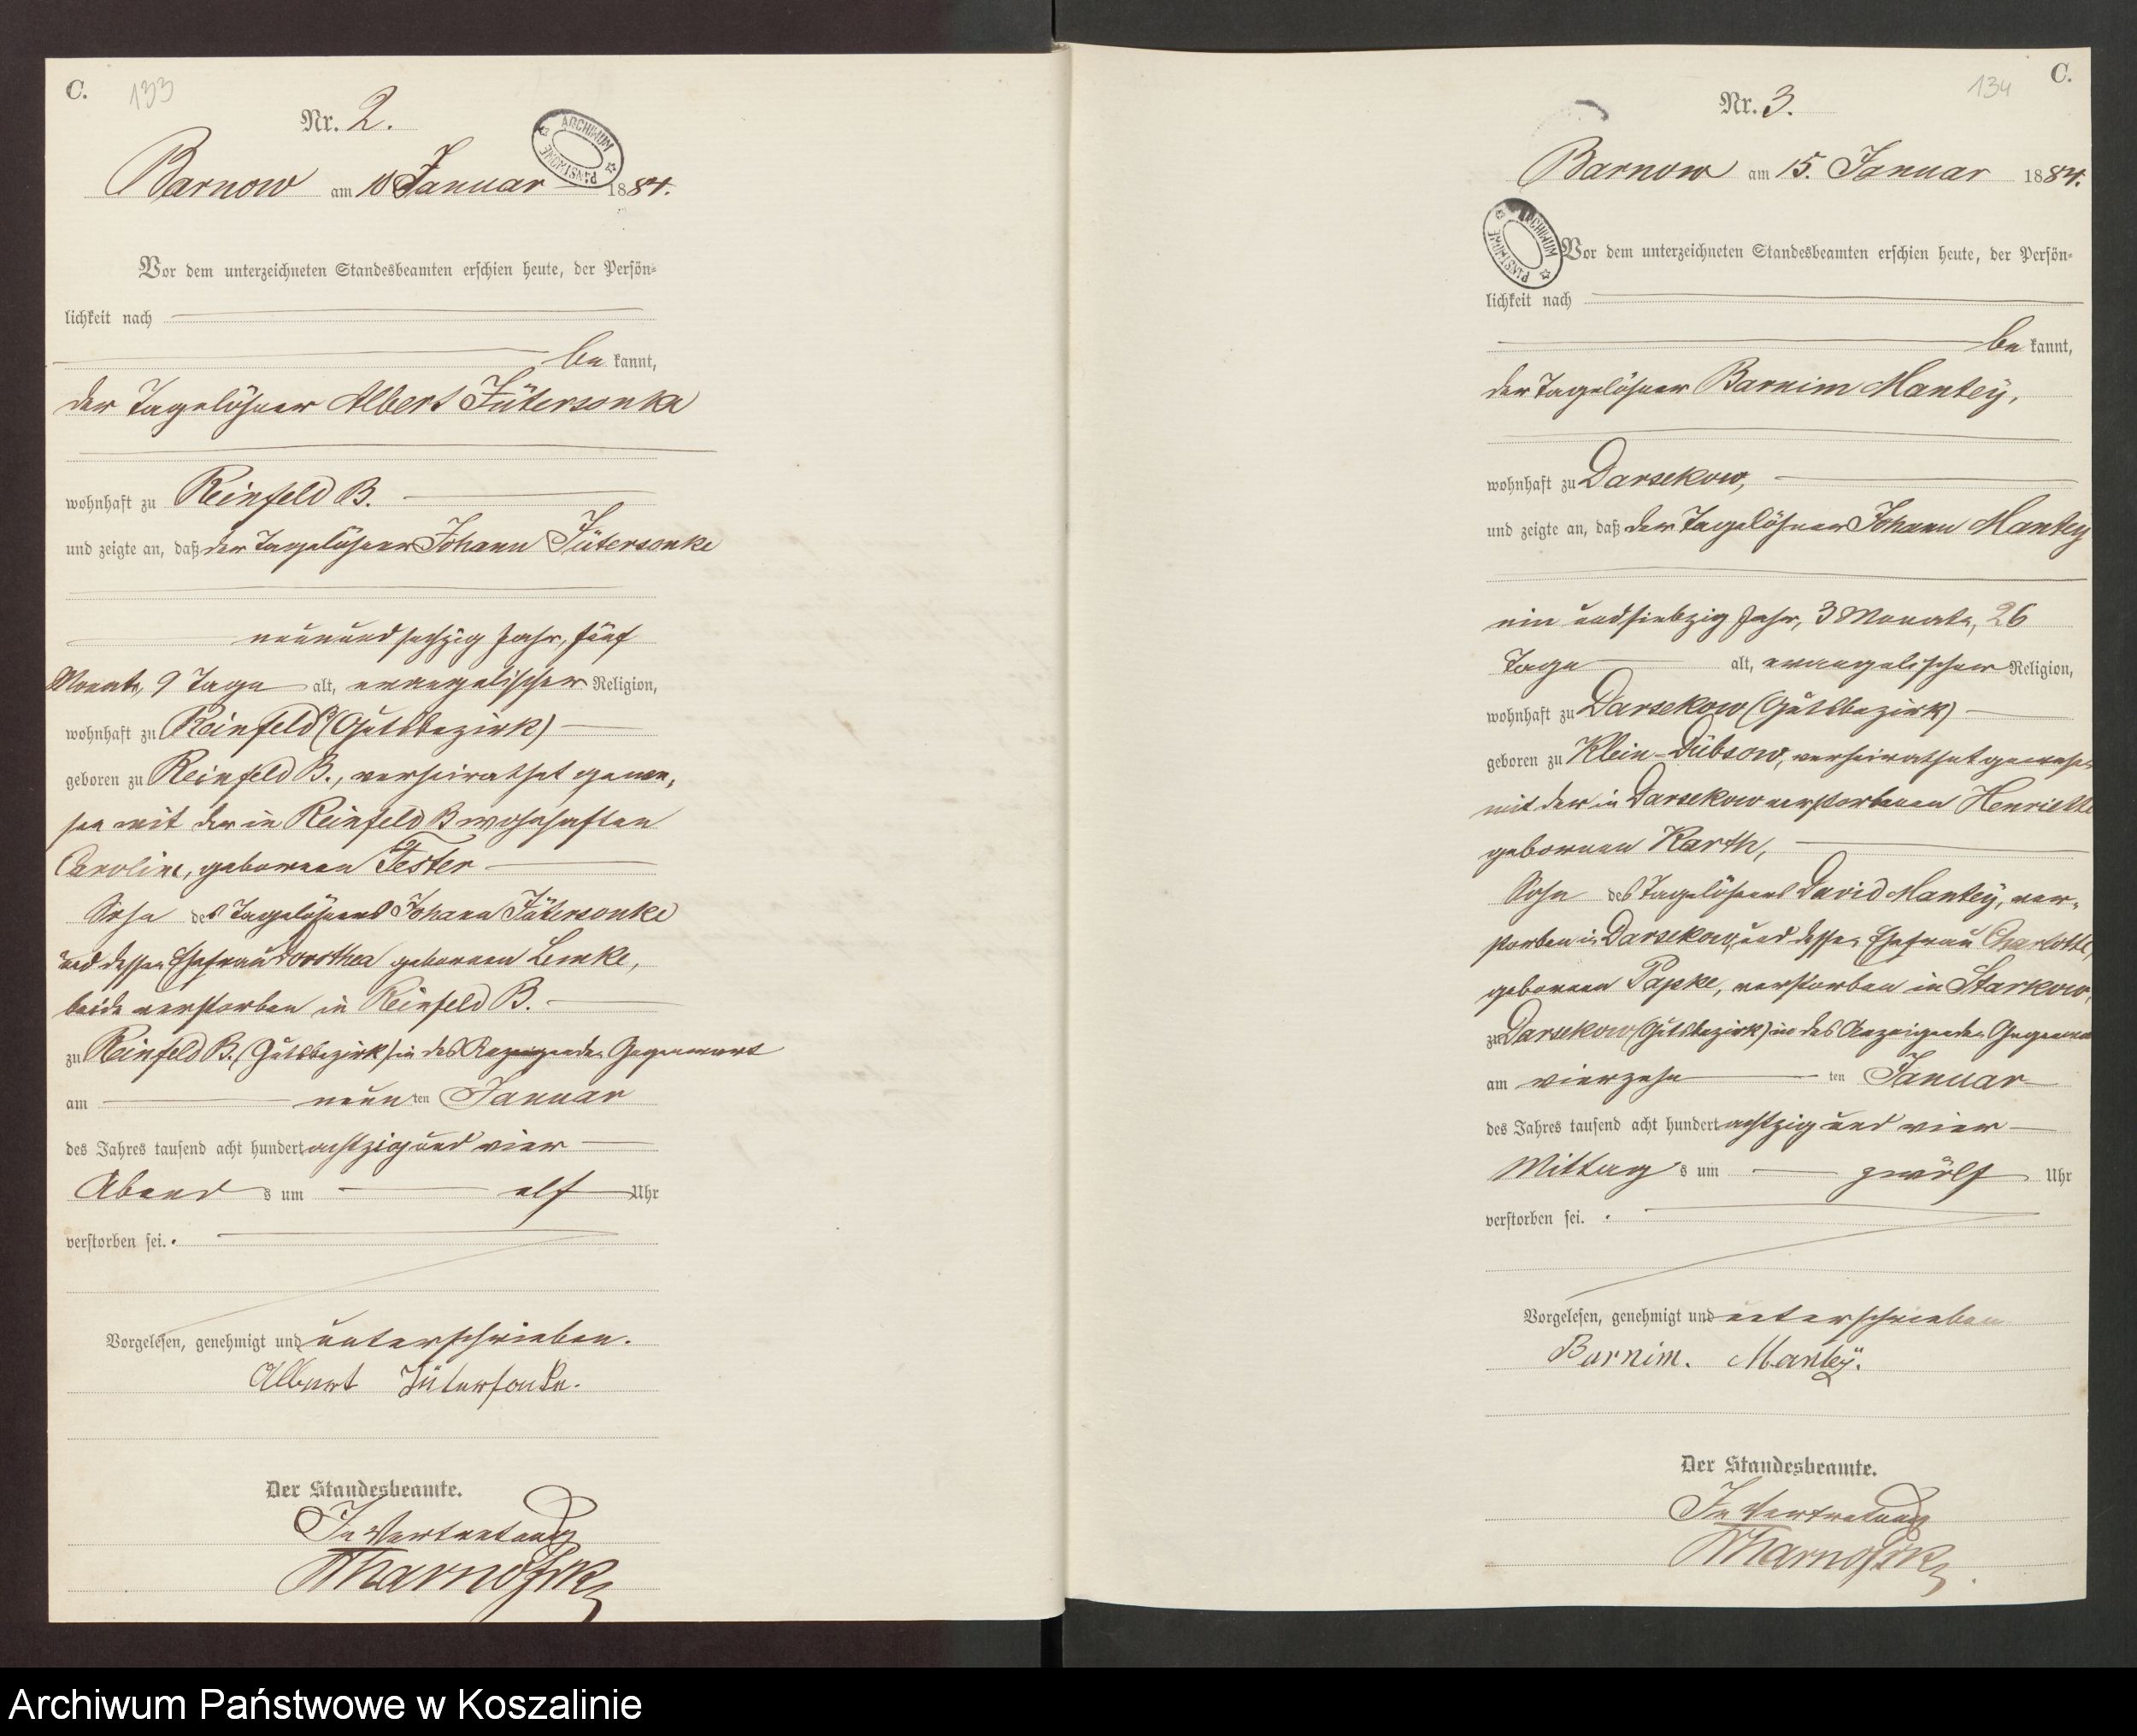 C. 133
Nr. 2.
ARCHIWUM PAŃSTWOWE
Barnow am 10 Januar 1884.
Vor dem unterzeichneten Standesbeamten erschien heute, der Persön-
lichkeit nach
be kannt,
der Tagelöhner Albert Jütersonke
wohnhaft zu Reinfeld B.
und zeigte an, daß der Tagelöhner Johann Jütersonke
neunundsechzig Jahr, fünf
Monate, 9 Tage alt, evangelischer Religion,
wohnhaft zu Reinfeld B (Gutsbezirk)
geboren zu Reinfeld B., verheirathet gewe-
sen mit der in Reinfeld B wohnhaften
Caroline, geborenen Tester
Sohn des Tagelöhners Johann Jütersonke
und dessen Ehefrau Dorothea geborenen Lemke,
beide verstorben in Reinfeld B.
zu Reinfeld B. (Gutsbezirk) in des Anzeigenden Gegenwart
am neun ten Januar
des Jahres tausend acht hundert achtzig und vier
Abend s um elf Uhr
verstorben sei.
Vorgelesen, genehmigt und unterschrieben.
Albert Jütersonke.
Der Standesbeamte.
In Vertretung
C. 134
Nr. 3.
Barnow am 15. Januar 1884.
ARCHIWUM PAŃSTWOWE
Vor dem unterzeichneten Standesbeamten erschien heute, der Persön-
lichkeit nach
be kannt,
der Tagelöhner Barnim Mantey,
wohnhaft zu Darsekow,
und zeigte an, daß der Tagelöhner Johann Mantey
ein und siebzig Jahr, 3 Monate, 26
Tage alt, evangelischer Religion,
wohnhaft zu Darsekow (Gutsbezirk)
geboren zu Klein-Dübsow, verheirathet gewesen
mit der in Darsekow verstorbenen Henriette
geborenen Karth,
Sohn des Tagelöhners David Mantey, ver-
storben in Darsekow, und dessen Ehefrau Charlotte,
geborenen Papke, verstorben in Starkow,
zu Darsekow (Gutsbezirk) in des Anzeigenden
am vierzehn ten Januar
des Jahres tausend acht hundert achtzig und vier
Mittag s um zwölf Uhr
verstorben sei.
Vorgelesen, genehmigt und unterschrieben
Barnim. Mantey.
Der Standesbeamte.
In Vertretung
Archiwum Państwowe w Koszalinie